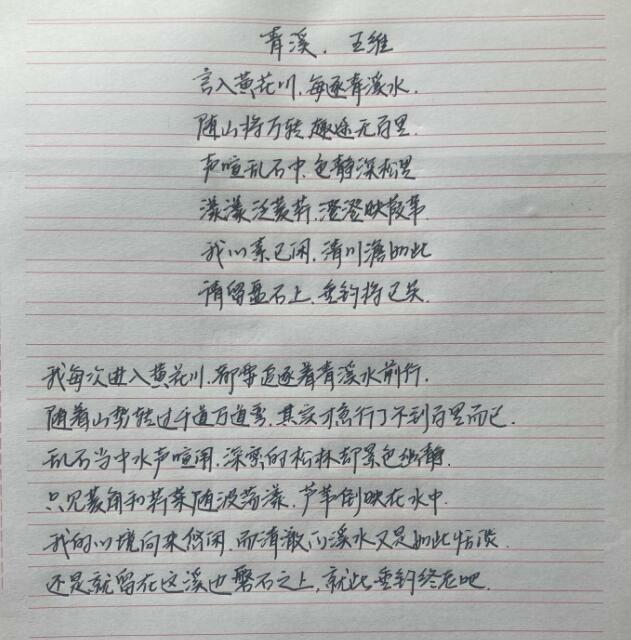 青溪. 王维
言入黄花川,每逐青溪水.
随山将万转,趣途无百里.
声喧乱石中,色静深松里
漾漾泛菱荇,澄澄映葭苇.
我心素已闲,清川澹如此
请留盘石上,垂钓将已矣.
我每次进入黄花川,都要追逐着青溪水前行.
随着山势转过千道万道弯,其实才急行了不到百里而已.
乱石当中水声喧闹,深密的松林却景色幽静.
只见菱角和荇菜随波荡漾,芦苇倒映在水中.
我的心境向来悠闲,而清澈的溪水又是如此恬淡.
还是就留在这溪边磐石之上,就此垂钓终老吧.